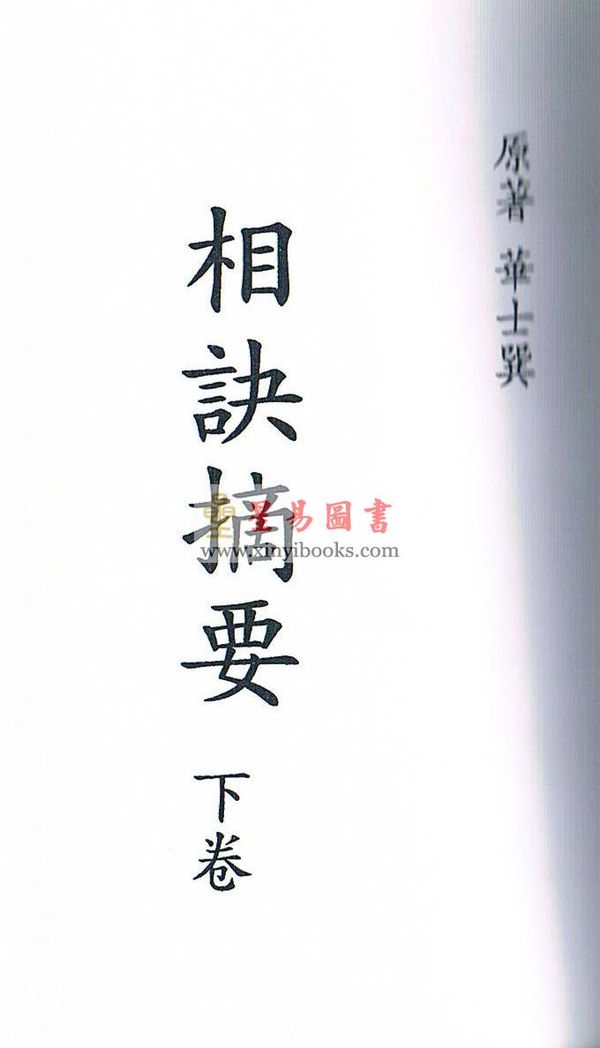 原著 華士巽
相訣摘要 下卷
星易圖書
www.xinyibooks.com